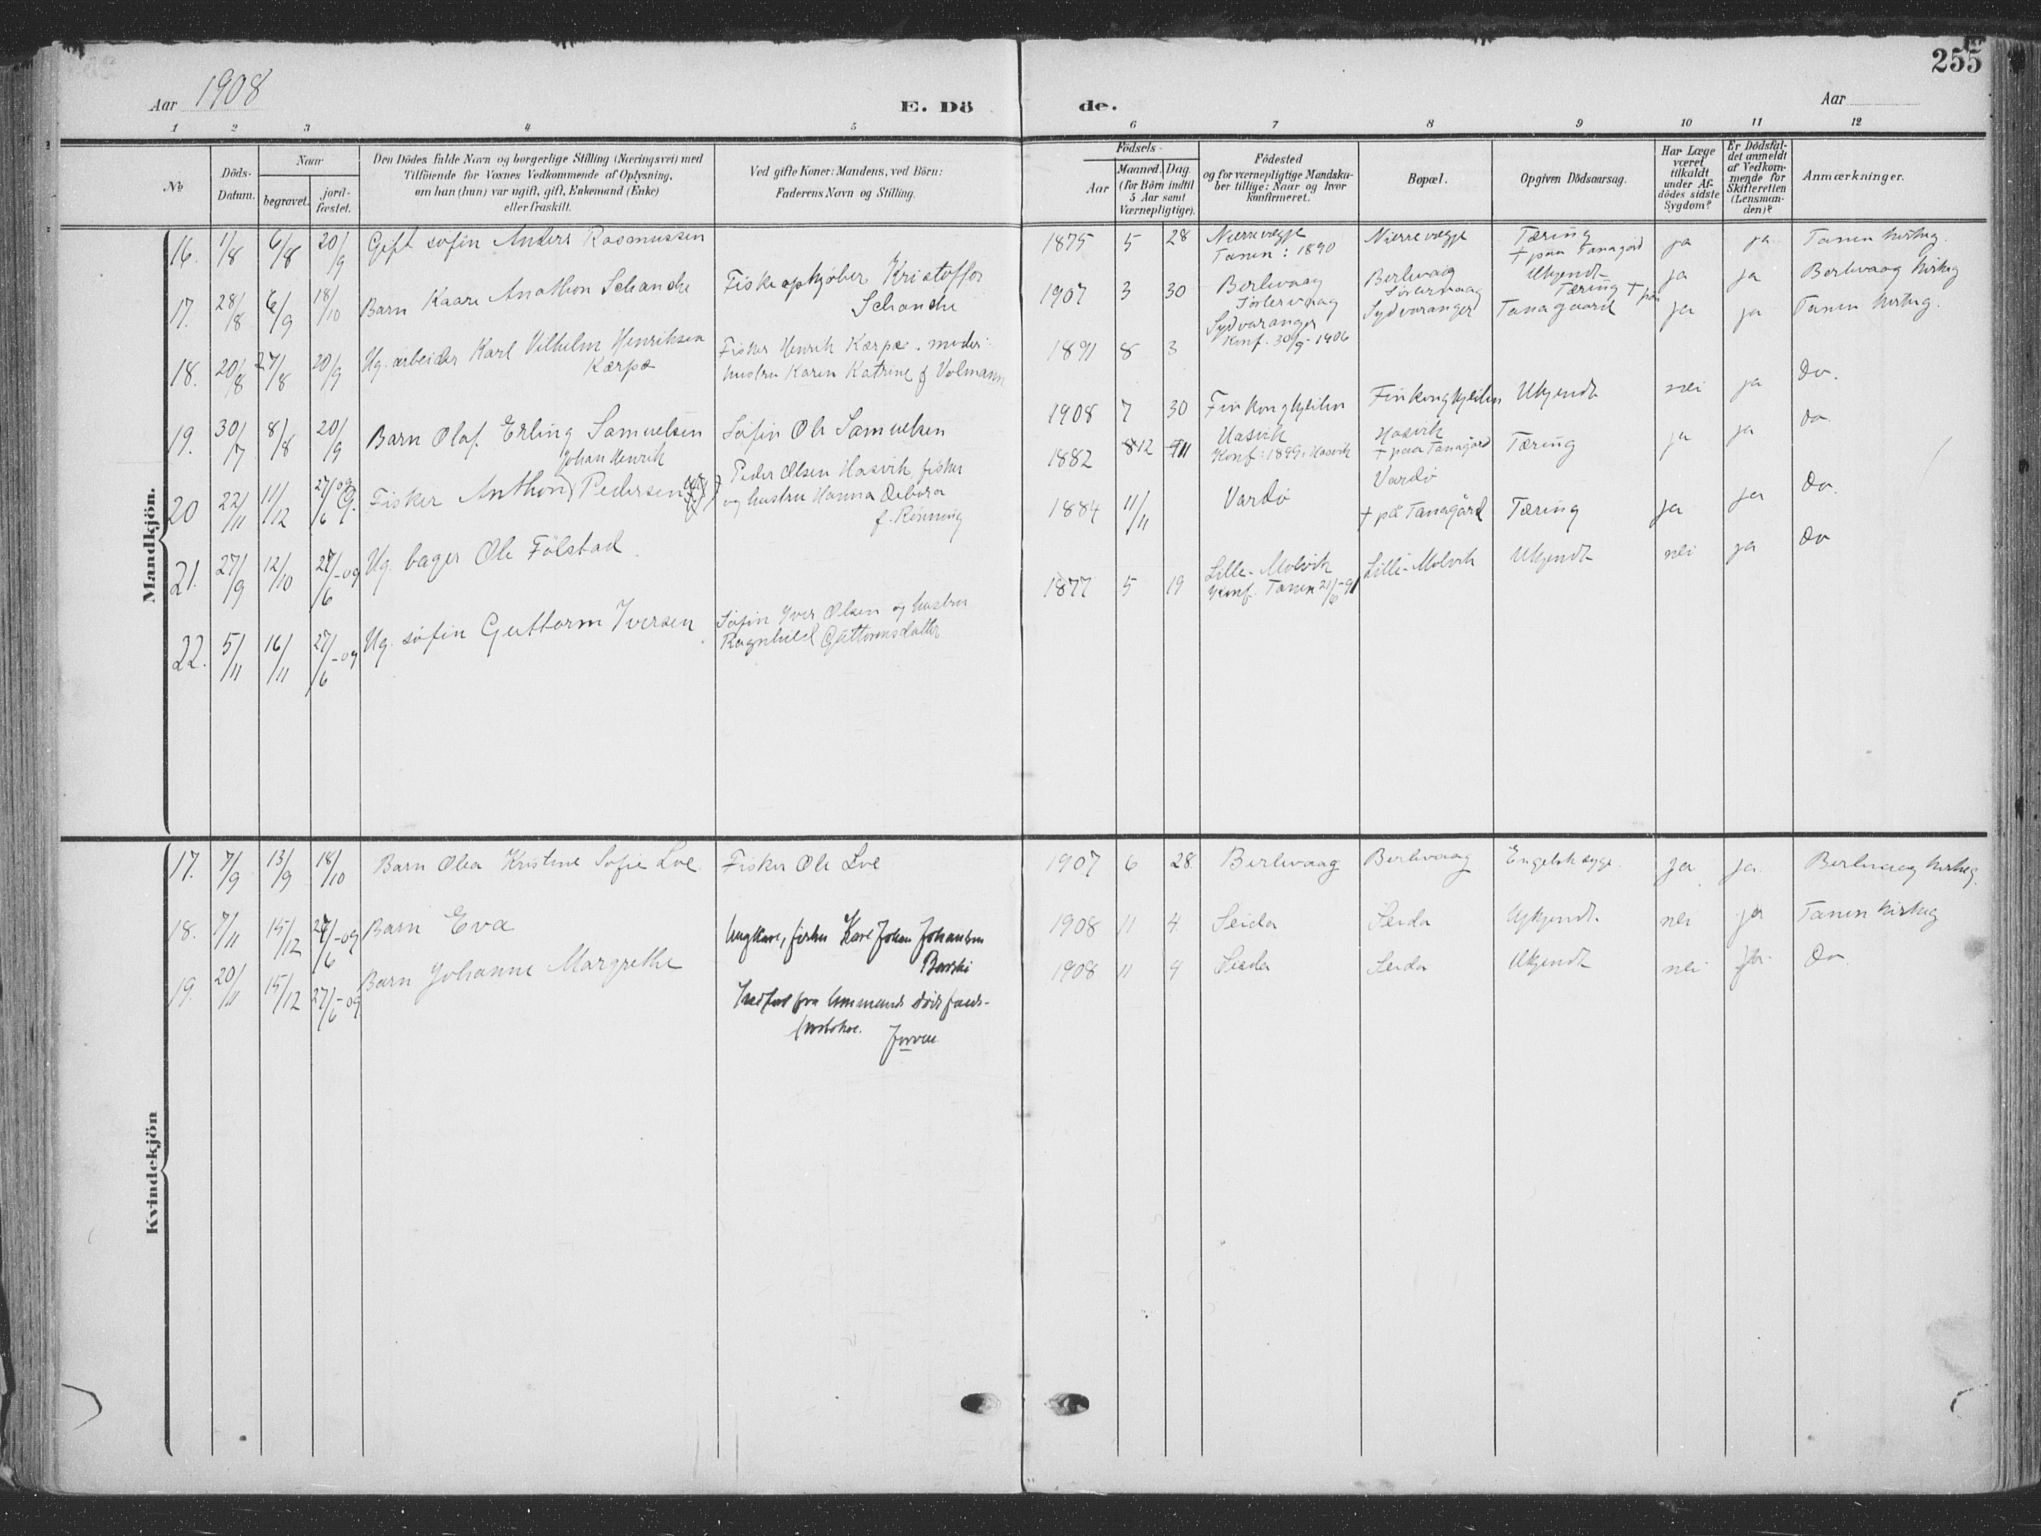 255
Aar 1908
E. Döde.
Aar
1 2 3 4 5 6 7 8 9 10 11 12
No
Döds-Datum.
Naar
begravet.
jordfæstet.
Den Dödes fulde Navn og borgerlige Stilling (Næringsvei) med
Tilföiende for Voxnes Vedkommende af Oplysning,
om han (hun) var ugift, gift, Enkemand (Enke)
eller fraskilt.
Ved gifte Koner: Mandens, ved Börn:
Faderens Navn og Stilling.
Födsels-
Aar
Maaned. Dag
(for Börn indtil
5 Aar samt
Værnepligtige).
Födested
og for værnepligtige Mandska-
ber tillige: Naar og hvor
konfirmeret.
Bopæl.
Opgiven Dödsaarsag.
Har Læge
været
tilkaldt
under Af-
dödes sidste
Sygdom?
Er Dödsfal-
det anmeldt
af Vedkom-
mende for
Skifteretten
(Lensman-
den)?
Anmærkninger.
Mandkjön.
16. 1/8 6/8 20/9 Gift søfin Anders Rasmussen 1875 5 28 Nierrevægje Nierrevægje Tæring ja ja Tanen kirkeg.
Tanen: 1890 + paa Tanagård
17. 28/8 6/9 18/10 Barn Kaare Anathon Schanche Fiskeopkjøber Kristoffer 1907 3 30 Berlevaag Berlevaag Ukjendt ja ja Berlevaag kirkeg
Schanche
18. 20/8 27/8 20/9 Ug. arbeider Karl Vilhelm Henriksen Fisker Henrik Kærpæ. moder: 1891 8 3 Sydvaranger Sydvaranger Tæring + paa Tanagaard ja ja Tanen kirkeg.
Kærpæ hustru Karen Katrine f Volmann Konf. 30/9-1906
19. 30/7 8/8 20/9 Barn Olaf Erling Samuelsen Søfin Ole Samuelsen 1908 7 30 Finkongkjeilen Finkongkjeilen Ukjendt nei ja Do.
Johan Henrik
20 22/11 11/12 27/6 09 Fisker Anthon Pedersen Peder Olsen Hasvik, fisker 1882 12 11 Hasvik Hasvik Tæring ja ja Do.
og hustru Hanna Debora Konf: 1899. Hasvik + paa Tanagård
f. Rønning
21. 27/9 12/10 27/6-09 Ug. bager Ole Følstad. 1884 11/11 Vardø Vardø Tæring ja ja Do.
+ på Tanagård
22. 5/11 16/11 27/6-09 Ug. søfin Guttorm Iversen Søfin Iver Olsen og hustru 1877 5 19 Lille-Molvik Lille-Molvik Ukjendt nei ja Do
Ragnhild Guttormsdatter Konf. Tanen 21/6-91
Kvindekjön
17. 7/9 13/9 18/10 Barn Olea Kristine Sofie Loe Fisker Ole Loe 1907 6 28 Berlevaag Berlevaag Engelsk syge. ja ja Berlevaag kirkeg.
18. 7/11 15/12 27/6-09 Barn Eva Ungkarl, fisker Karl Johan Johansen 1908 11 4. Seida Seida Ukjendt. nei ja Tanen kirkeg
19. 20/11 15/12 27/6-09 Barn Johanne Margrethe 1908 11 4 Seida Seida Ukjendt nei ja. Do.